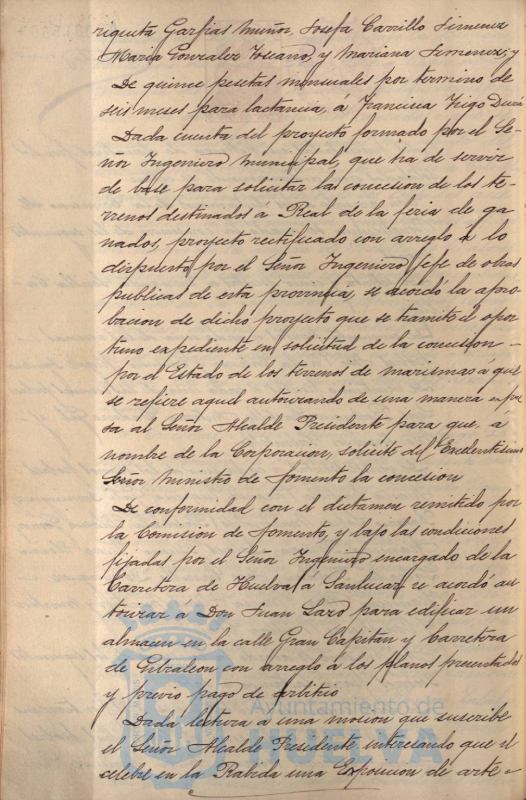 riqueta Garfias Muñoz, Josefa Carrillo Jimenez
Maria Gonzalez Toscano, y Mariana Jimenez; y
De quince pesetas mensuales por termino de
seis meses para lactancia, á Francisca Trigo Durá
Dada cuenta del proyecto formado por el Se-
ñor Ingeniero Municipal, que ha de servir
de base para solicitar la concesion de los te-
rrenos destinados á Real de la feria de ga-
nados, proyecto rectificado con arreglo á lo
dispuesto por el Señor Ingeniero Jefe de obras
publicas de esta provincia, se acordó la apro-
bacion de dicho proyecto que se tramite el opor
tuno expediente en solicitud de la concesion -
por el Estado de los terrenos de marismas á que
se refiere aquel autorizando de una manera expre
sa al Señor Alcalde Presidente para que, á
nombre de la Corporacion, solicite del Excelentisimo
Señor Ministro de fomento la concesion
De conformidad con el dictamen remitido por
la Comision de fomento, y bajo las condiciones
fijadas por el Señor Ingeniero encargado de la
Carretera de Huelva á Sanlucar se acordó au
torizar á Don Juan Lazo para edificar un
almacen en la calle Gran Capitan y Carretera
de Gibraleon con arreglo á los planos presentados
y previo pago de arbitrio
Dada lectura á una mocion que suscribe
el Señor Alcalde Presidente interesando que se
celebre en la Rabida una Exposicion de arte
Ayuntamiento de
HUELVA